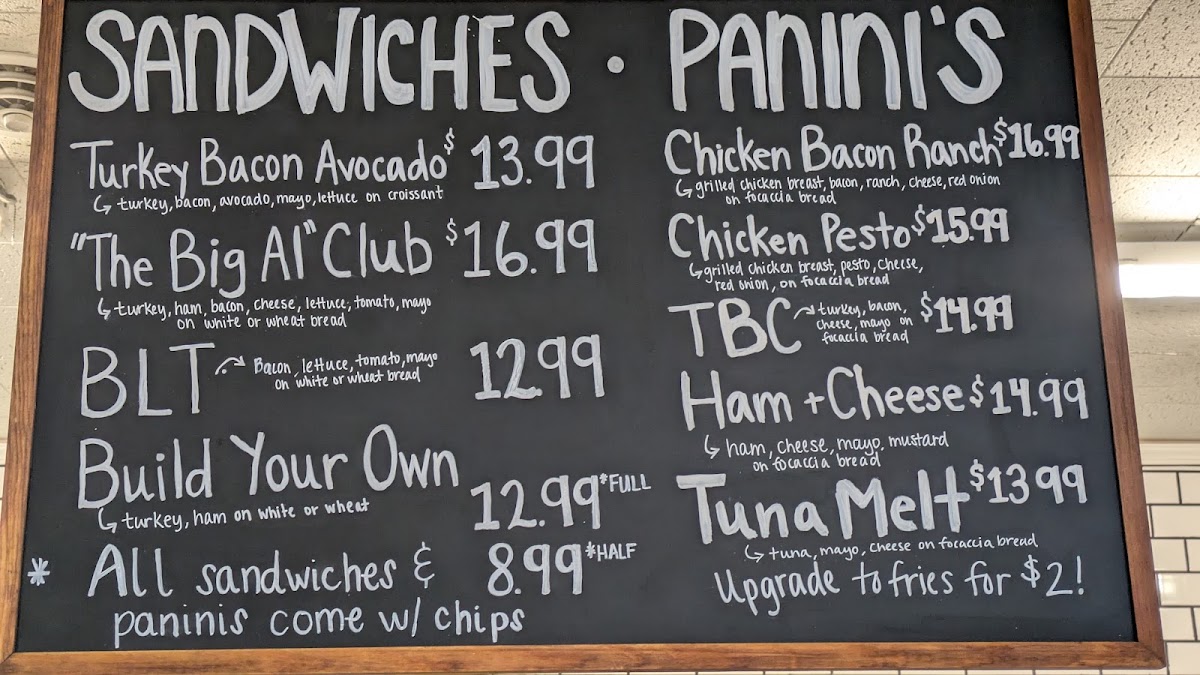 SANDWICHES · PANINI'S
Turkey Bacon Avocado $13.99
turkey, bacon, avocado, mayo, lettuce on croissant
"The Big Al" Club $16.99
turkey, ham, bacon, cheese, lettuce, tomato, mayo
on white or wheat bread
BLT 12.99
Bacon, lettuce, tomato, mayo
on white or wheat bread
Build Your Own
turkey, ham on white or wheat
12.99 *FULL
8.99 *HALF
* All sandwiches &
paninis come w/ chips
Chicken Bacon Ranch $16.99
grilled chicken breast, bacon, ranch, cheese, red onion
on focaccia bread
Chicken Pesto $15.99
grilled chicken breast, pesto, cheese,
red onion, on focaccia bread
TBC $14.99
turkey, bacon,
cheese, mayo on
focaccia bread
Ham + Cheese $14.99
ham, cheese, mayo, mustard
on focaccia bread
Tuna Melt $13.99
tuna, mayo, cheese on focaccia bread
Upgrade to fries for $2!